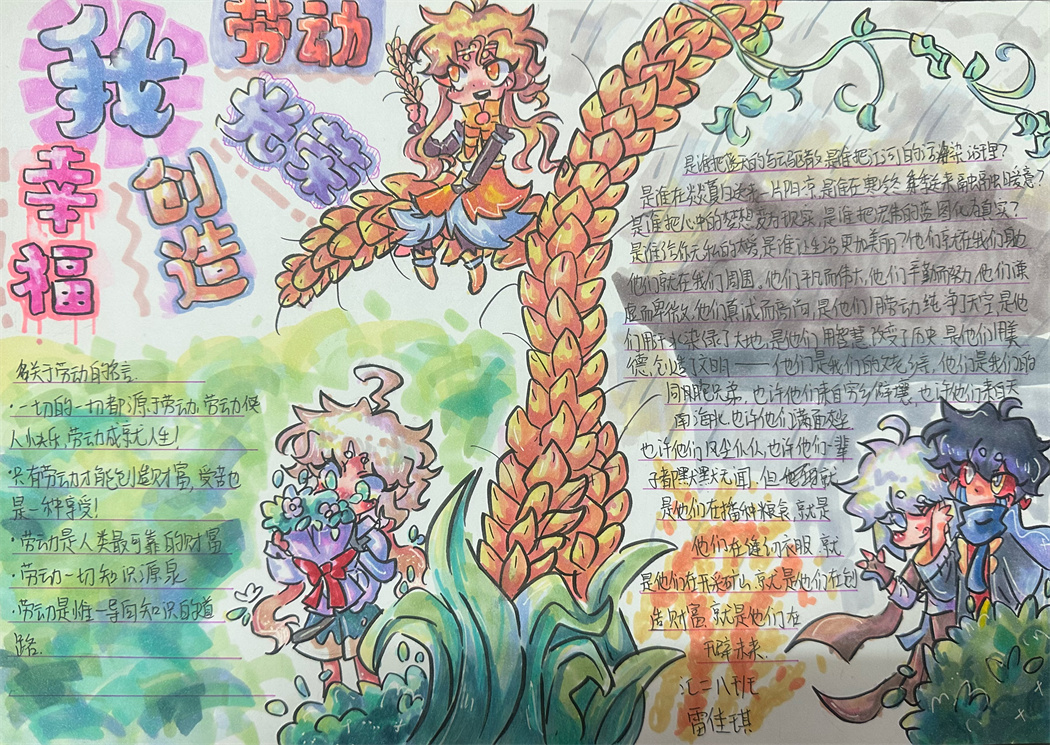 劳动
我
光荣
幸福
创造
名关于劳动的名言
·一切的一切都源于劳动,劳动使
人快乐,劳动成就人生!
·只有劳动才能创造财富,受苦也
是一种享受!
·劳动是人类最可靠的财富
·劳动一切知识源泉
·劳动是惟一导向知识的道
路.
是谁把 的 是谁把江河的污染治理?
是谁在炎炎夏日送来一片阴凉,是谁在寒冬 送来融融的暖意?
是谁把心中的梦想变为现实,是谁把宏伟的蓝图化为真实?
是谁给你无私的 是谁让生活更加美丽?他们就在我们身边
他们就在我们周围,他们平凡而伟大,他们辛勤而努力,他们谦
虚而卑微,他们真诚而高尚,是他们用劳动纯净了天空,是他
们用汗水染绿了大地,是他们用智慧改变了历史,是他们用美
德创造了文明——他们是我们的父老乡亲,他们是我们的
同胞兄弟,也许他们来自穷乡僻壤,也许他们来自天
南海北,也许他们满面尘
也许他们风尘仆仆,也许他们一辈
子都默默无闻,但 就
是他们在播种粮食,就是
他们在缝纫衣服,就
是他们在开采矿山,就是他们在创
造财富,就是他们在
开辟未来.
汇二八班
雷佳琪